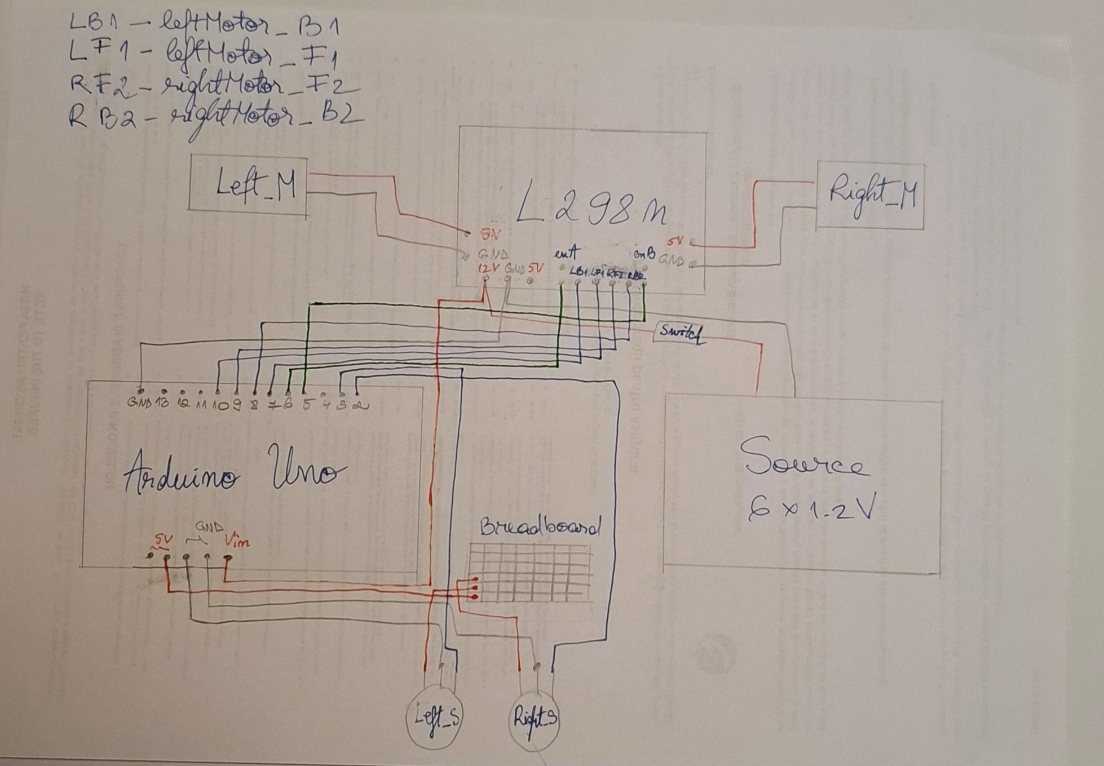 LB1 - leftMotor_B1
LF1 - leftMotor_F1
RF2 - rightMotor_F2
RB2 - rightMotor_B2
Left_M
L298n
Right_M
5V
GND
12V GND 5V
enA
LB1 LF1 RF2 RB2
enB
5V
GND
Switch
GND 13 12 11 10 9 8 7 6 5 4 3 2
Arduino Uno
Source
6 x 1.2V
5V
GND
Vin
Breadboard
Left_S
Right_S